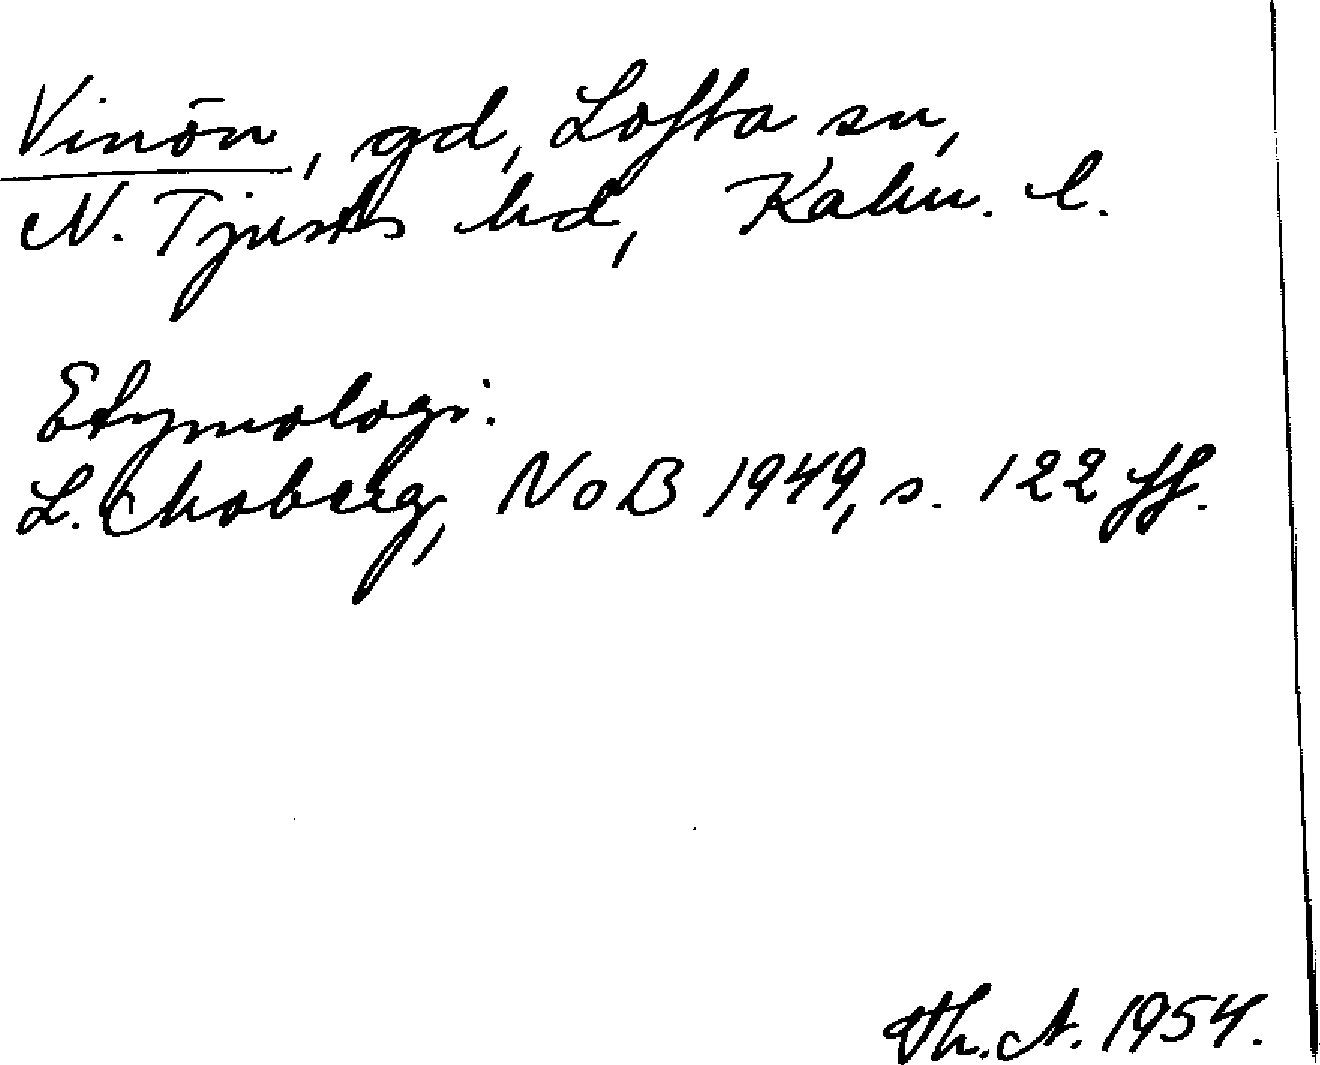 Vinön, gd, Lofta sn,
N. Tjusts hd, Kalm. l.
Etymologi:
L. Moberg, NoB 1949, s. 122 ff.
Th. A. 1954.